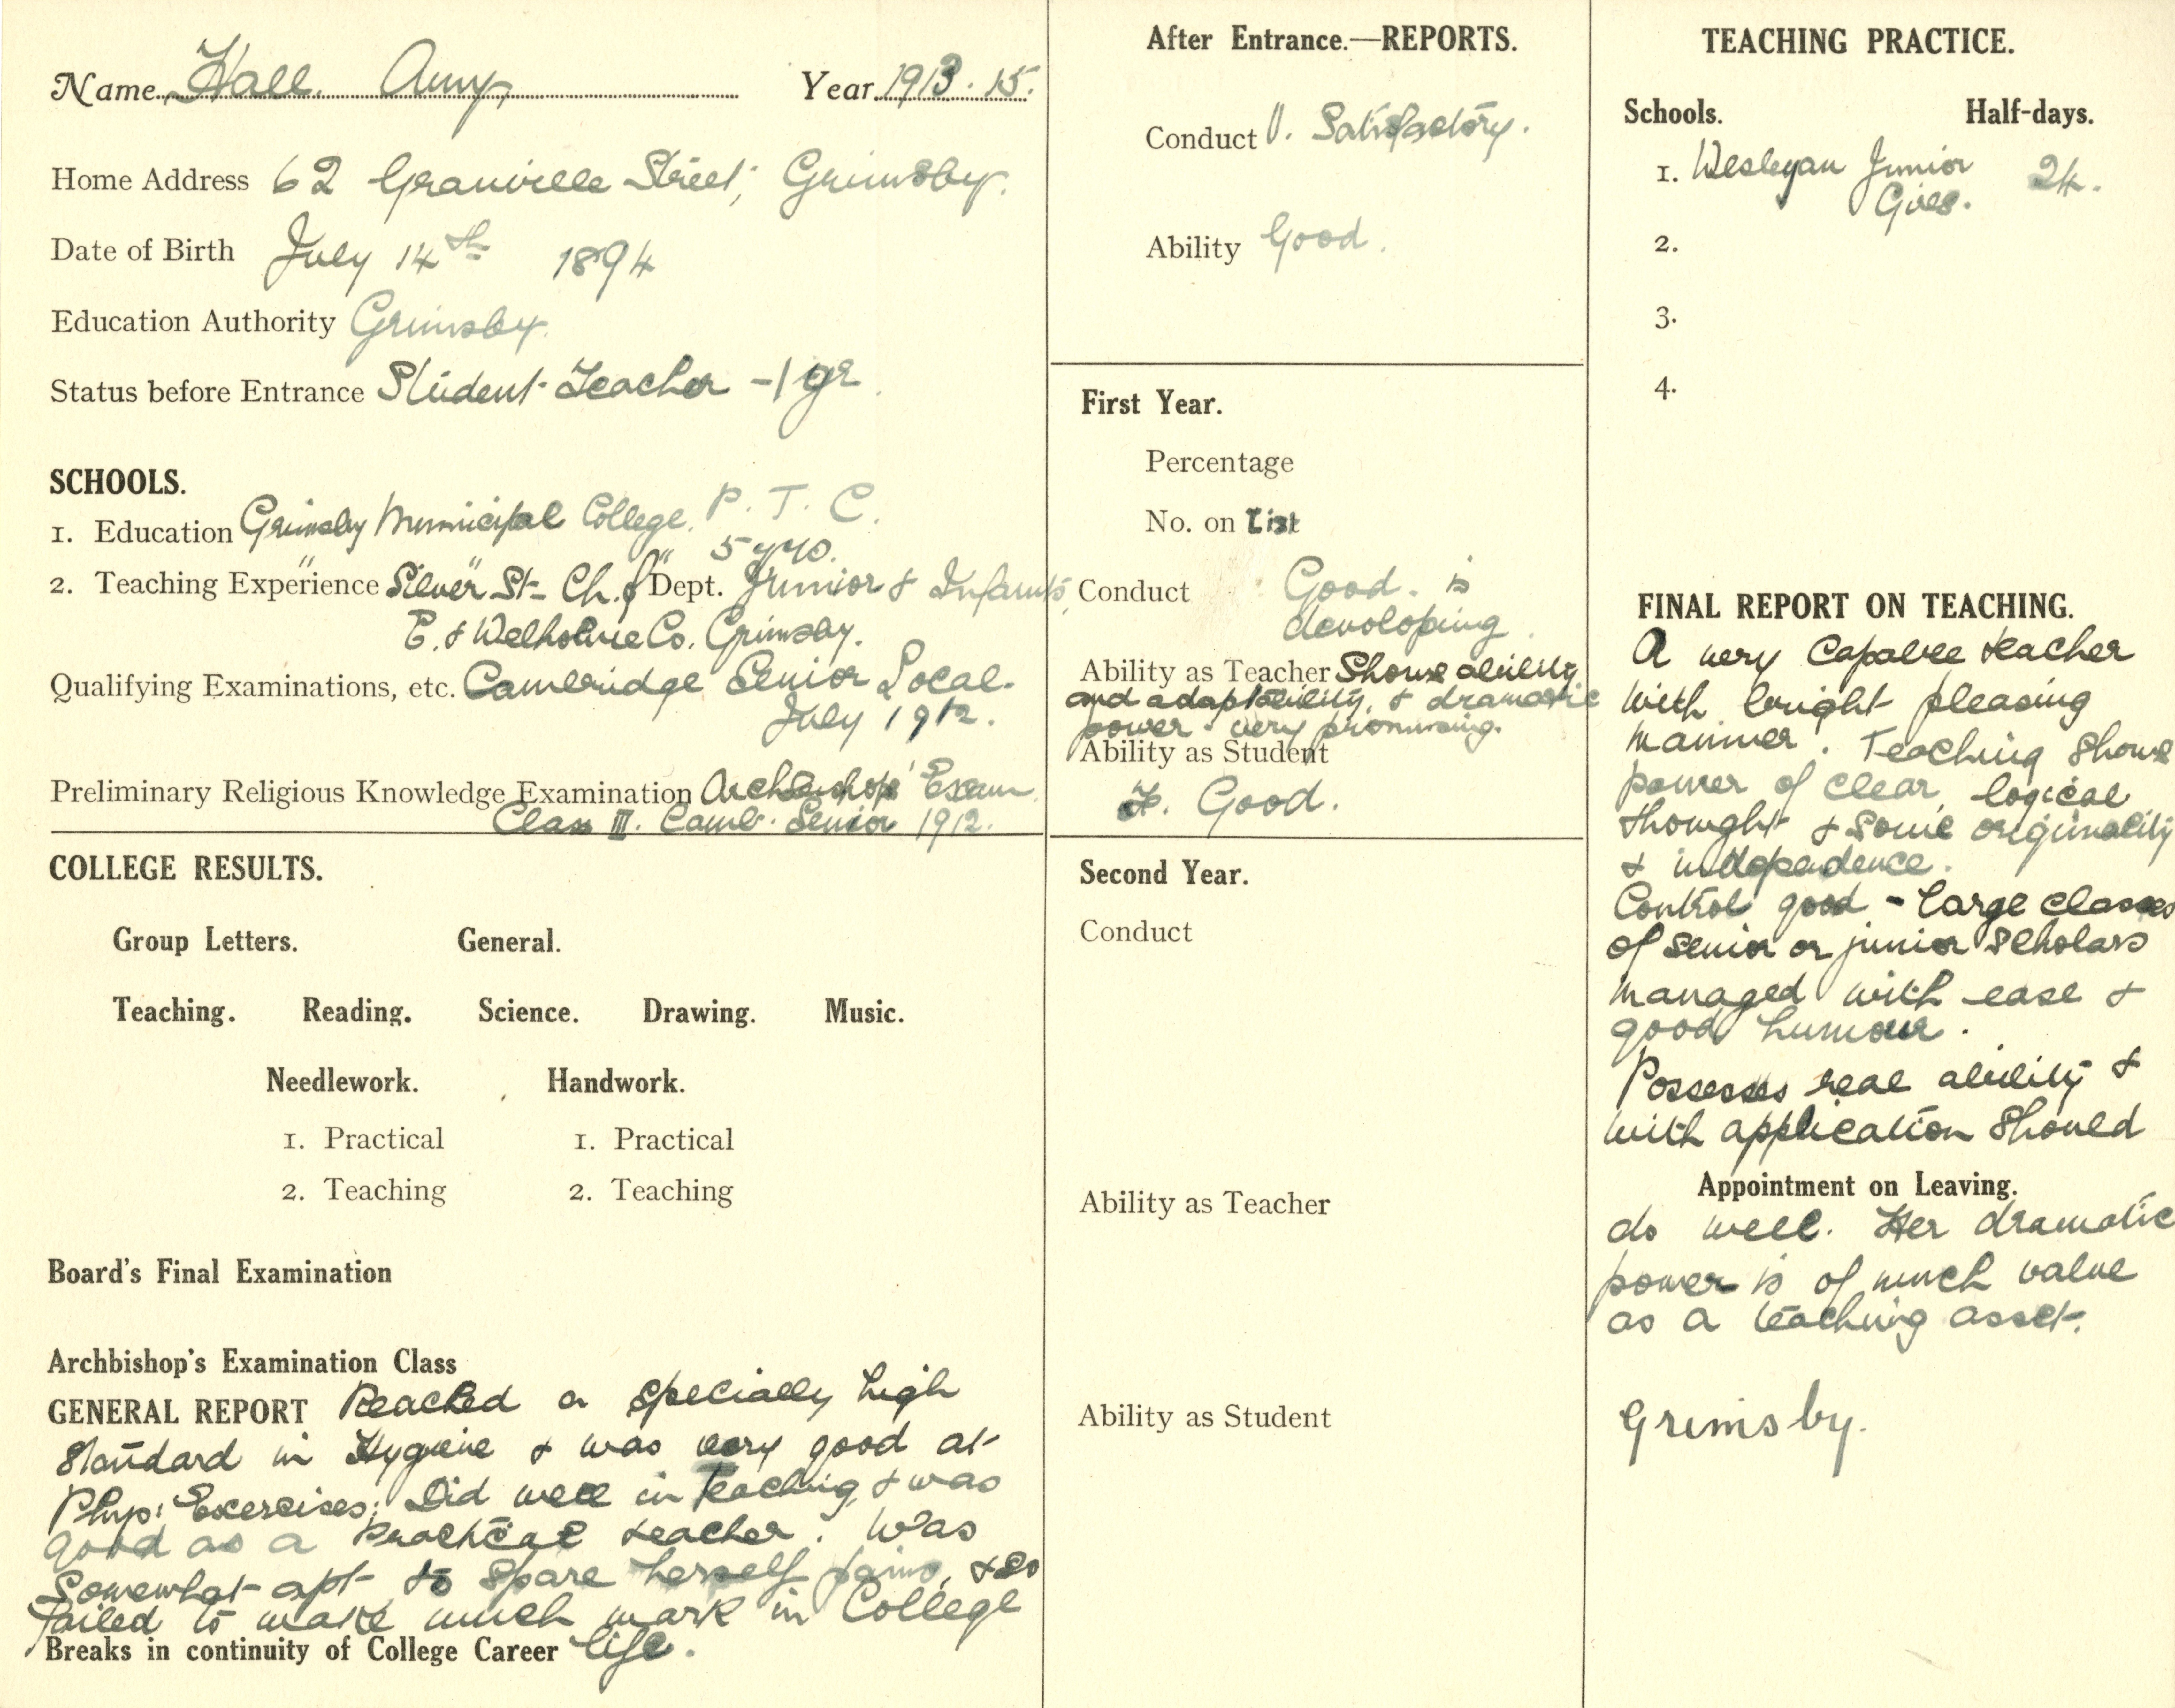 Name Hall. Amy, Year 1913. 15.
Home Address 62 Granville Street, Grimsby.
Date of Birth July 14th 1894
Education Authority Grimsby.
Status before Entrance Student Teacher - 1 yr.
SCHOOLS.
1. Education Grimsby Municipal College. P. T. C.
5 yrs.
2. Teaching Experience Silver St- Ch. of Dept. Junior & Infants,
E. & Welholme Co. Grimsby.
Qualifying Examinations, etc. Cambridge Senior Local.
July 1912.
Preliminary Religious Knowledge Examination Archbishops' Exam.
Class III. Camb. Senior 1912.
COLLEGE RESULTS.
Group Letters. General.
Teaching. Reading. Science. Drawing. Music.
Needlework. Handwork.
1. Practical 1. Practical
2. Teaching 2. Teaching
Board's Final Examination
Archbishop's Examination Class
GENERAL REPORT Reached a specially high
standard in Hygiene & was very good at
Phys: Exercises; Did well in Teaching & was
good as a practical teacher. Was
somewhat apt to spare herself pains, & so
failed to make much mark in College
Breaks in continuity of College Career life.
After Entrance.—REPORTS.
Conduct V. Satisfactory.
Ability Good.
First Year.
Percentage
No. on List
Conduct Good. is
developing.
Ability as Teacher Shows ability
and adaptability, & dramatic
power - very promising.
Ability as Student
F. Good.
Second Year.
Conduct
Ability as Teacher
Ability as Student
TEACHING PRACTICE.
Schools. Half-days.
1. Wesleyan Junior 24.
Girls.
2.
3.
4.
FINAL REPORT ON TEACHING.
A very capable teacher
with bright pleasing
manner. Teaching shows
power of clear, logical
thought & some originality
& independence.
Control good - large classes
of senior or junior scholars
managed with ease &
good humour.
Possesses real ability &
with application should
Appointment on Leaving.
do well. Her dramatic
power is of much value
as a teaching asset.
Grimsby.